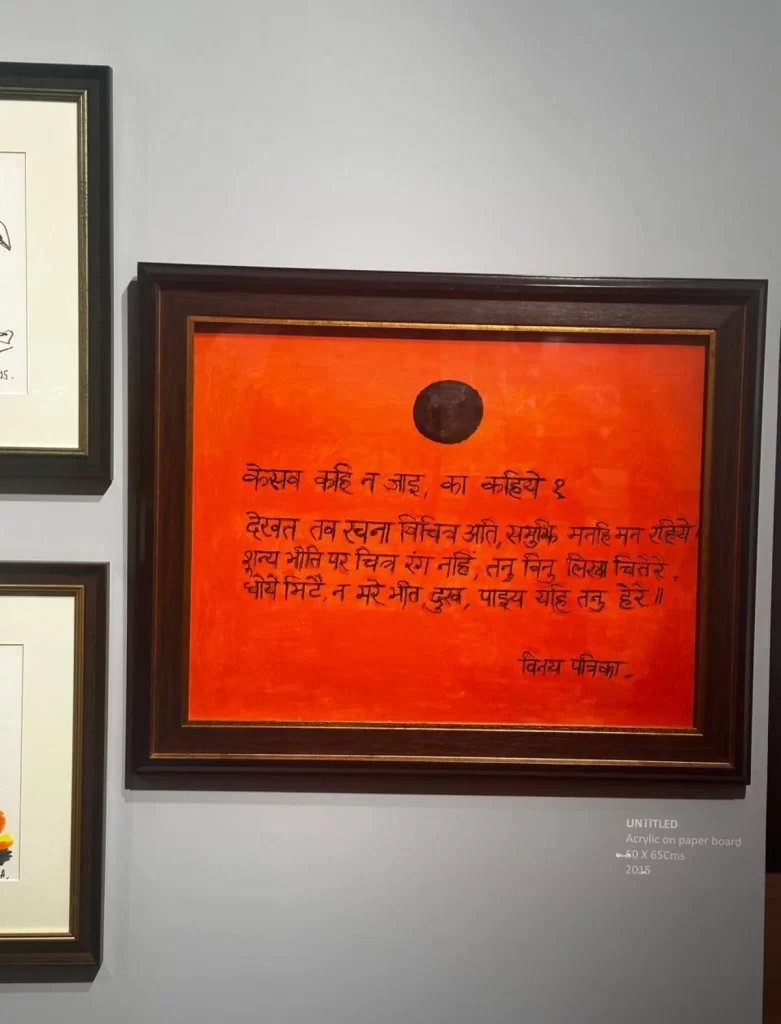 केसव कहि न जाइ, का कहिये ?
देखत तव रचना विचित्र अति, समुझि मनहि मन रहिये।
शून्य भीति पर चित्र रंग नहिं, तनु बिनु लिखा चितेरे,
धोये मिटै, न मरे भीत दुख, पाइय यहि तनु हेरे॥
विनय पत्रिका
UNTITLED
Acrylic on paper board
50 X 65Cms
2015